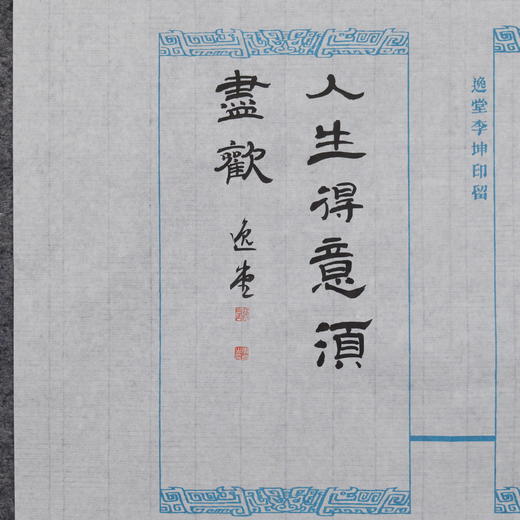 逸堂李坤印留
人生得意須
盡歡
逸堂